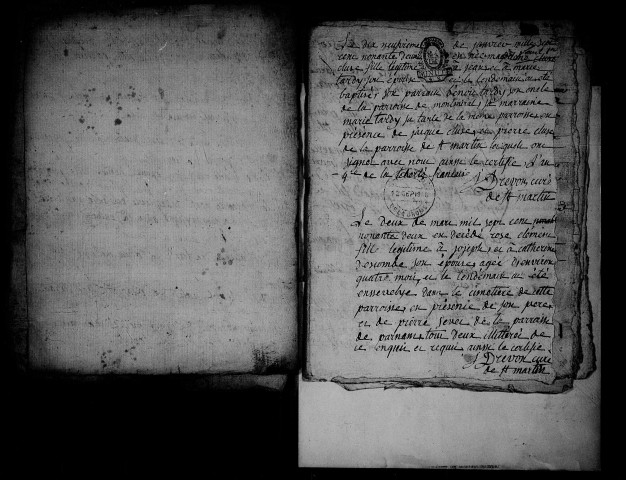 Le dix neuvieme de janvier mille sept
cent nonante deux est née magdelaine cluze
cluze fille legitime a jean et a marie
tardy son épouse et le lendemain a été
baptisée son parrain benoit tardy son oncle
de la parroisse de sa marraine
marie tardy sa tante de la même parroisse en
présence de jacque cluze et pierre cluze
de la parroisse de st martin lesquels ont
signé avec nous ainsi le certifie l'an
4e de la liberté francaise
Drevon curé
de st martin
Le deux de mars mil sept cent
nonante deux est decédé rose
fille legitime à joseph et à catherine
descombe son épouse agée d'environ
quatre mois et le lendemain a été
ensevelye dans le cimetière de cette
parroisse en présence de son pere
et de pierre de la parroisse
de parnans tout deux illitérés de
ce enquis et requis ainsi le certifie
Drevon curé
de st martin